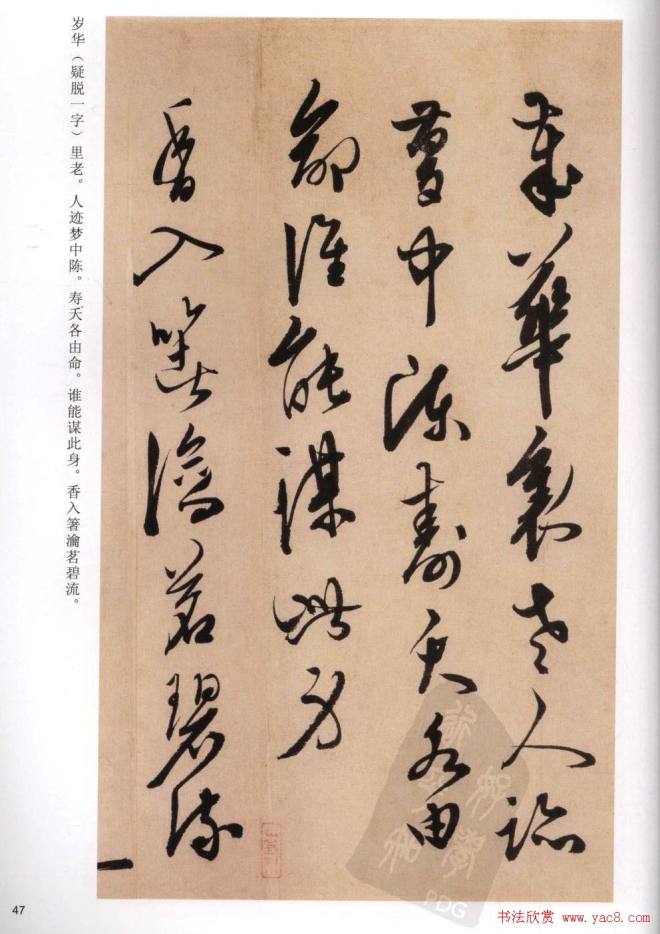 華裏老人跡
夢中陳壽夭各由
命誰能謀此身
香入瀹茗碧流
岁华（疑脱一字）里老。人迹梦中陈。寿夭各由命。谁能谋此身。香入箸瀹茗碧流。
47
PDG
书法欣赏 www.yac8.com